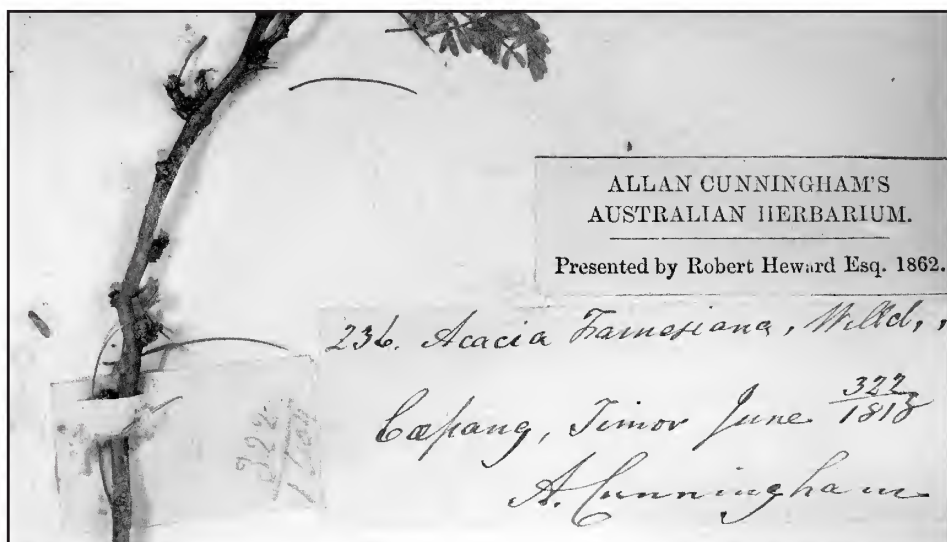 ALLAN CUNNINGHAM'S
AUSTRALIAN HERBARIUM.
Presented by Robert Heward Esq. 1862.
236. Acacia Farnesiana, Willd,,
Cœpang, Timor June 322/1818
A. Cunningham
322